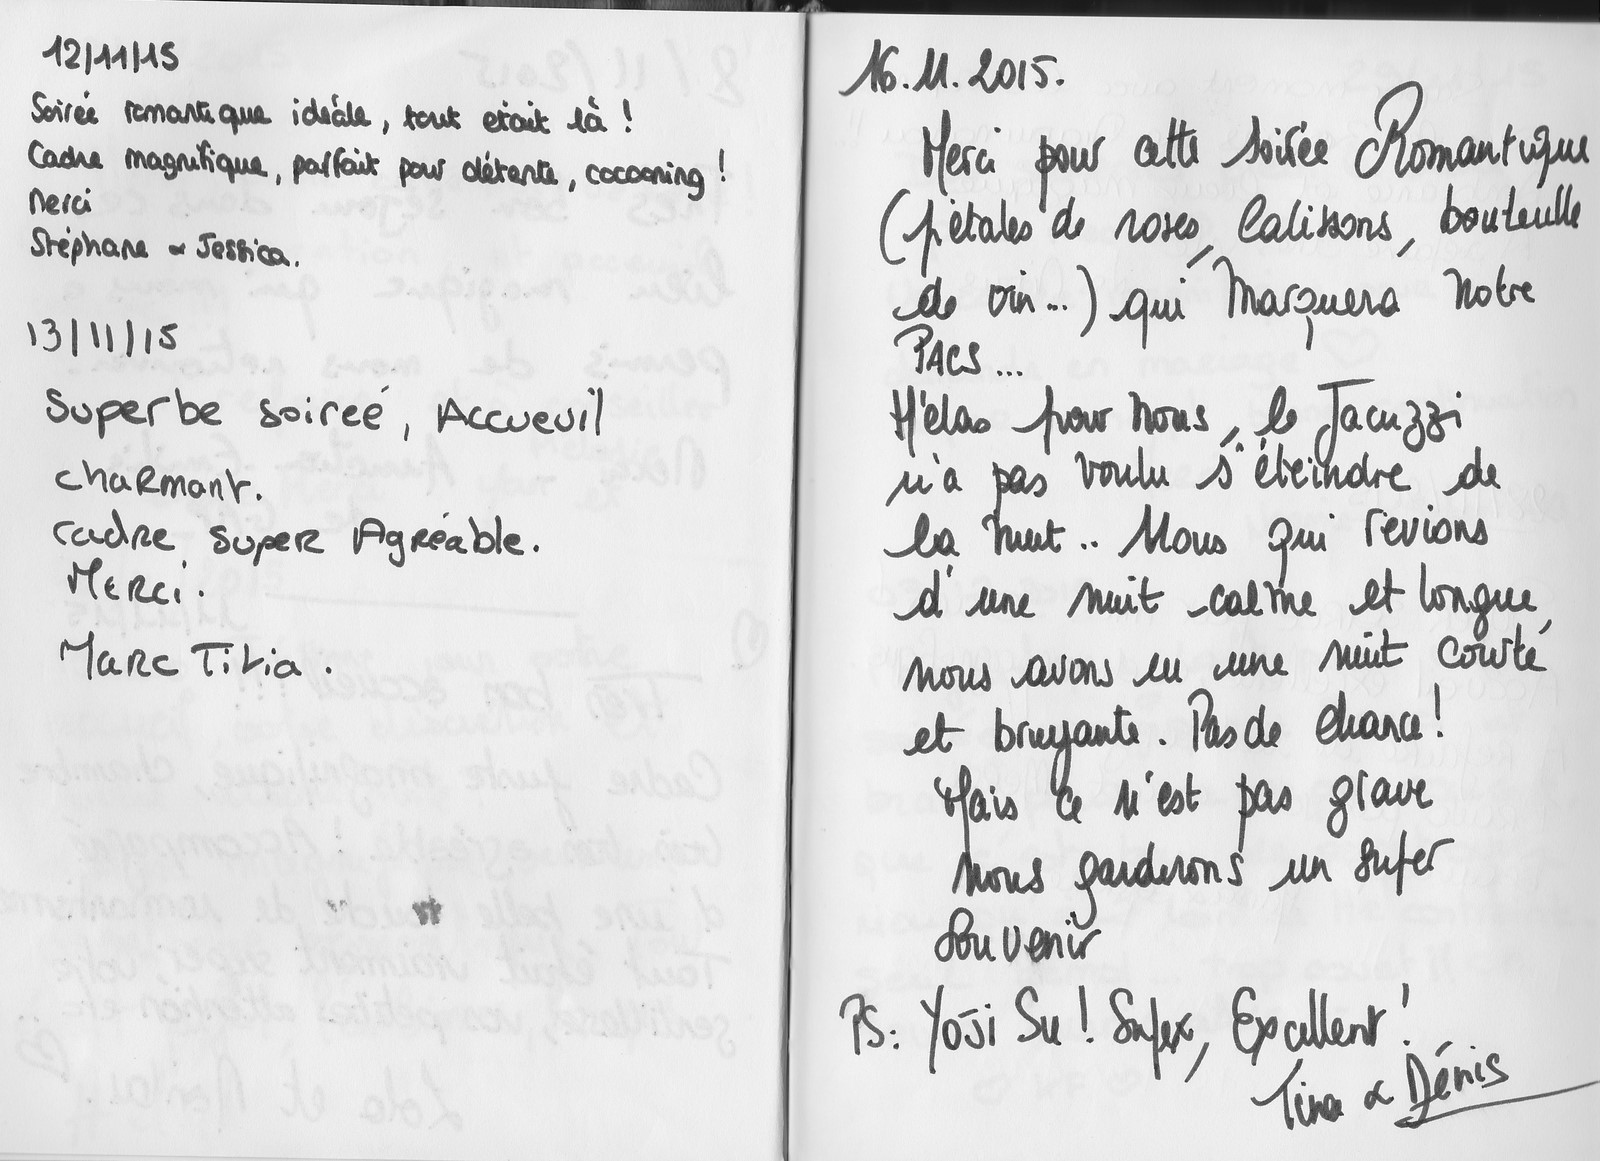 12/11/15
Soirée romantique idéale, tout etait là !
Cadre magnifique, parfait pour détente, cocooning !
Merci
Stéphane & Jessica.
13/11/15
Superbe soireé, Accueuil
charmant.
cadre super Agréable.
Merci.
Marc Titia.
16.11.2015.
Merci pour cette soirée Romantique
(pétales de roses, Calissons, bouteille
de vin...) qui marquera notre
PACS...
Hélas pour nous, le Jacuzzi
n'a pas voulu s'éteindre de
la nuit.. Nous qui revions
d'une nuit calme et longue,
nous avons eu une nuit courte
et bruyante. Pas de chance !
Mais ce n'est pas grave
nous garderons un super
souvenir
PS: Yoji Su ! Super, Excellent !
Tina & Dénis